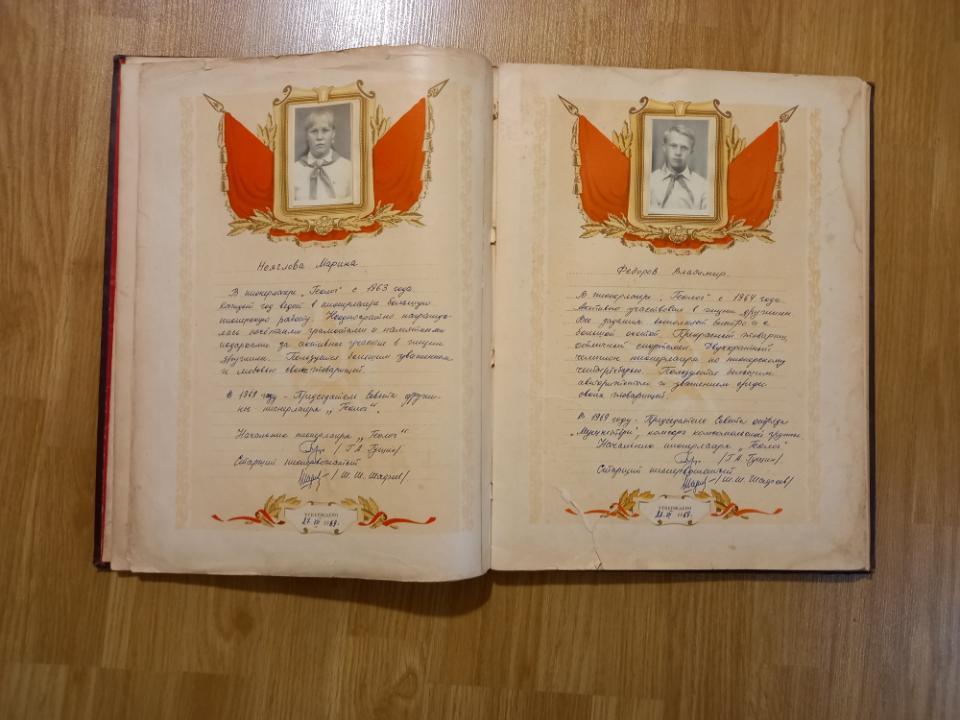 Неяглова Марина
В пионерлагере „Геолог" с 1963 года.
Каждый год ведет в пионерлагере большую
пионерскую работу. Неоднократно награжда-
лась почётными грамотами и памятными
подарками за активное участие в жизни
дружины. Пользуется большим уважением
и любовью своих товарищей.
В 1969 году - Председатель Совета дружи-
ны пионерлагеря „Геолог".
Начальник пионерлагеря „Геолог"
/Г.А. Гущин/
Старший пионервожатый
/Ш.Ш. /
УТВЕРЖДЕНО
27. 1969.
Федоров Владимир.
В пионерлагере „Геолог" с 1964 года.
Активно участвовал в жизни дружины
Все задания выполняет быстро и с
большой охотой. Прекрасный товарищ,
отличный спортсмен. Двухкратный
чемпион пионерлагеря по пионерскому
четырёхборью. Пользуется большим
авторитетом и уважением среди
своих товарищей.
В 1969 году - Председатель Совета отряда
комсорг комсомольской группы
Начальник пионерлагеря „Геолог"
/Г.А. Гущин/
Старший пионервожатый
/Ш.Ш. /
УТВЕРЖДЕНО
1969.